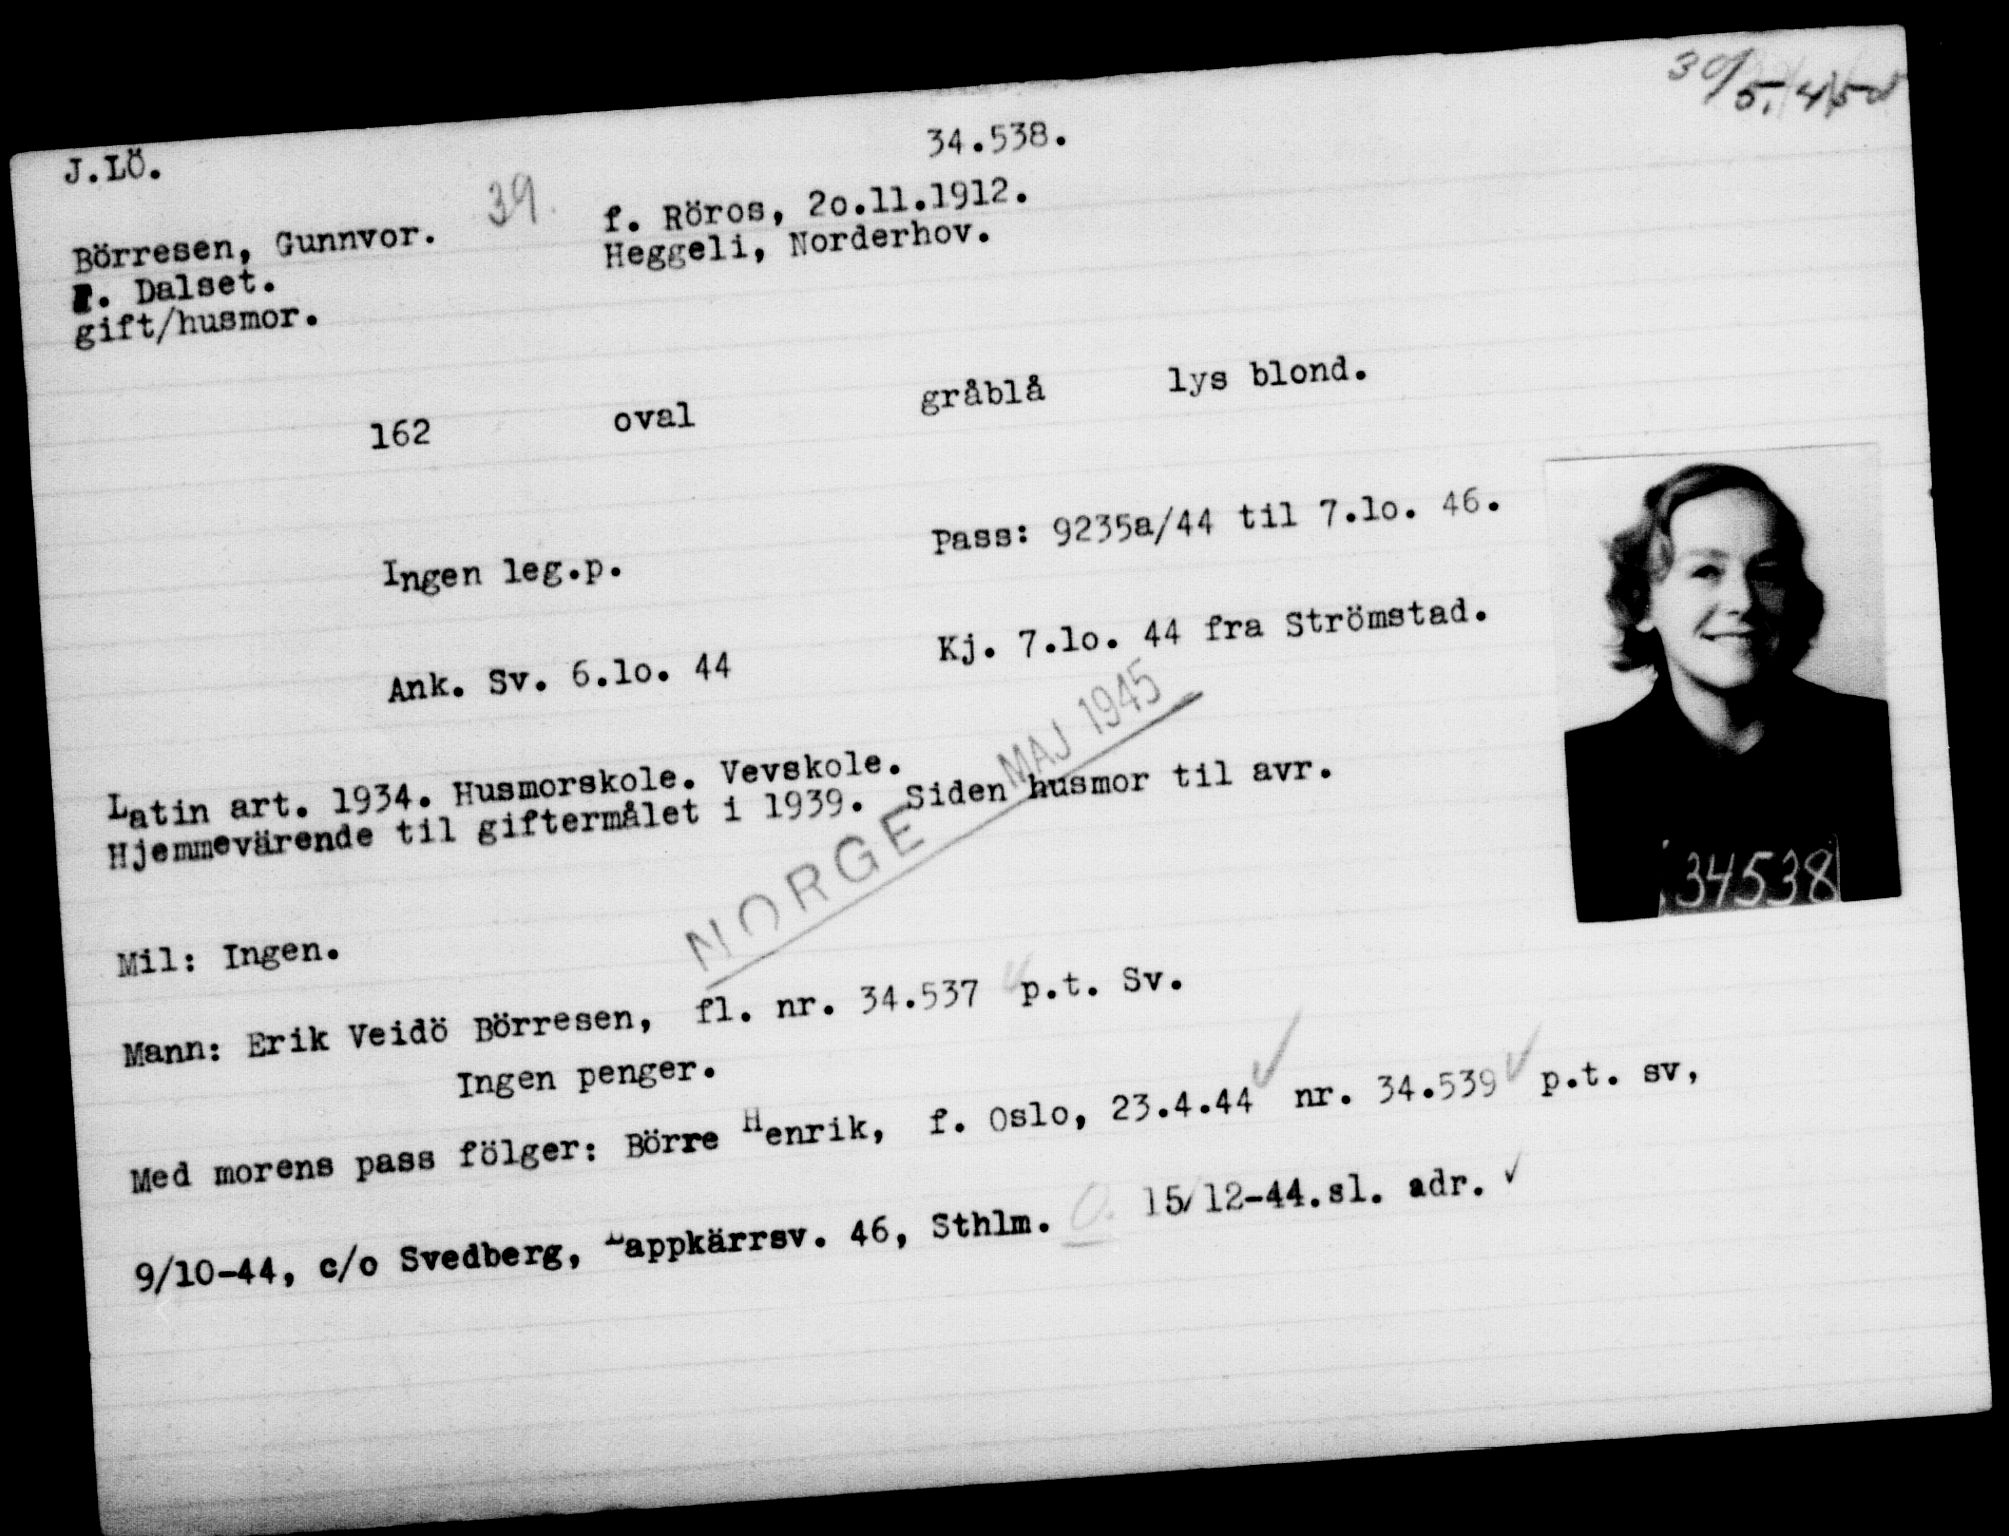 J.LÖ.
34.538.
30/5.45
Börresen, Gunnvor.
39.
f. Röros, 2o.11.1912.
. Dalset.
Heggeli, Norderhov.
gift/husmor.
162 oval gråblå lys blond.
Ingen leg.p.
Pass: 9235a/44 til 7.1o. 46.
Ank. Sv. 6.1o. 44
Kj. 7.1o. 44 fra Strömstad.
Latin art. 1934. Husmorskole. Vevskole.
Hjemmevärende til giftermålet i 1939. Siden husmor til avr.
NORGE MAJ 1945
34538
Mil: Ingen.
Mann: Erik Veidö Börresen, fl. nr. 34.537 p.t. Sv.
Ingen penger.
Med morens pass fölger: Börre Henrik, f. Oslo, 23.4.44 nr. 34.539 p.t. sv,
9/10-44, c/o Svedberg, Lappkärrsv. 46, Sthlm. O. 15/12-44.sl. adr.